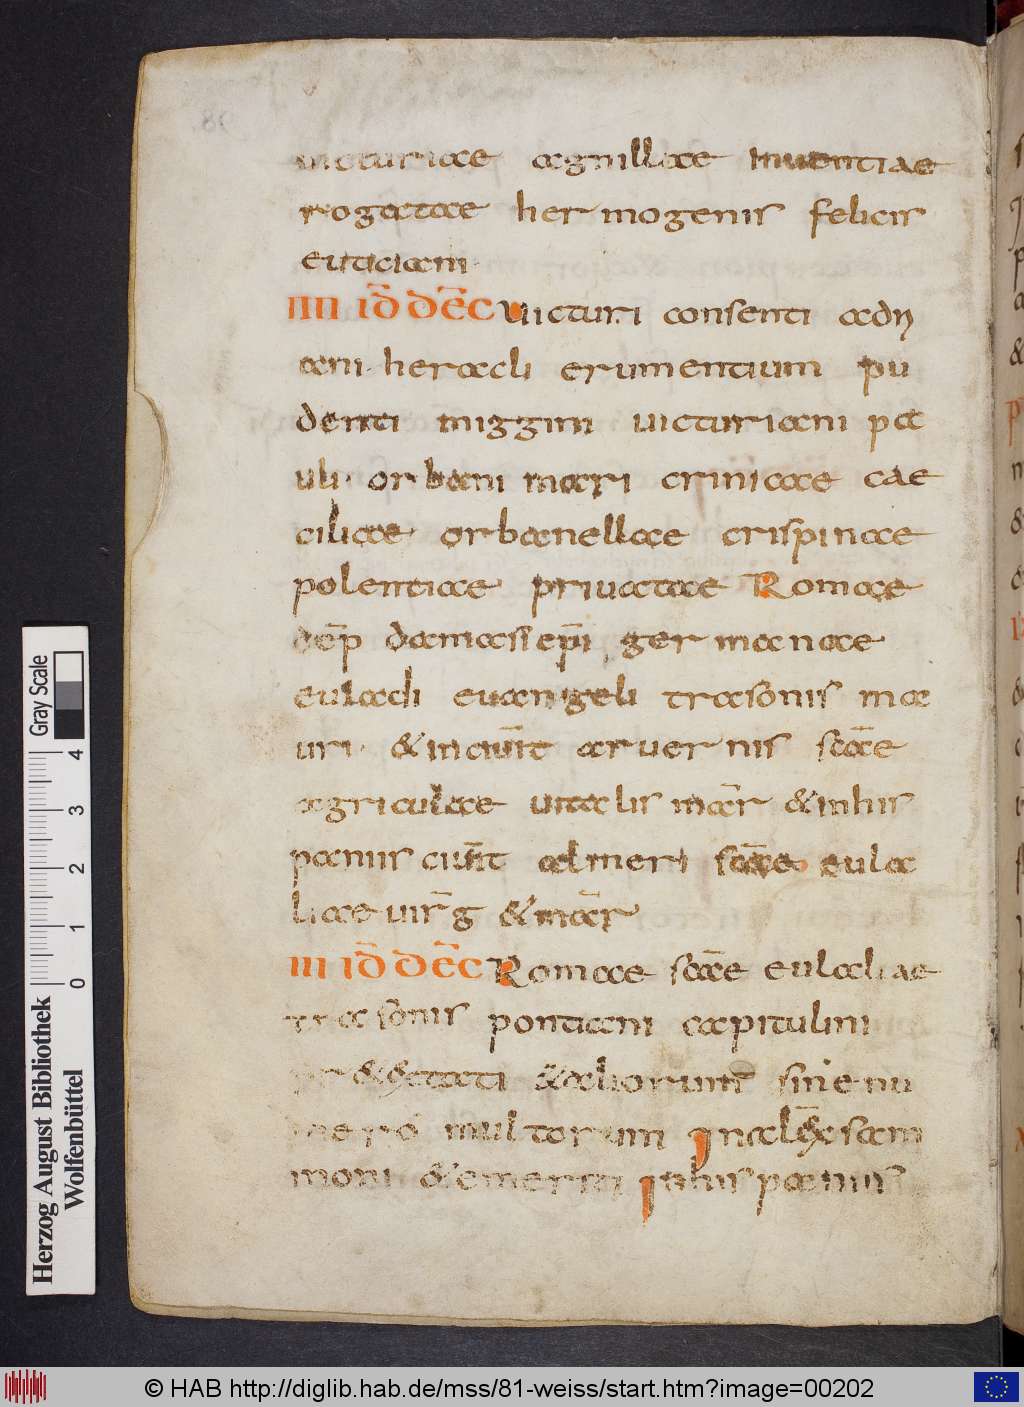 uicturiae agnillae Inuentiae
rogatae hermogenis felicis
euticiani
IIII ID DEC Uicturi consenti adri
ani · heracli erumentium pu
denti miggini uicturiani pa
uli · orbani mari crinicae cae
ciliae · orbanellae crispinae
polentiae priuatae Romae
dēp damasi epī germanae
euladi euangeli trasonis ma
uri · & in ciuīt aruernis scāe
agriculae uitalis mār & inhis
panus ciuīt almeri scāe eula
liae uirḡ & mār
III ID DEC Romae scāe eulaliae
trasonis pontiani capitulini
& aliorum sine nu
mero multorum Inalēxsam
moni & emeriti Inhispanus
98.
Herzog August Bibliothek
Wolfenbüttel
Gray Scale
0 1 2 3 4
© HAB http://diglib.hab.de/mss/81-weiss/start.htm?image=00202